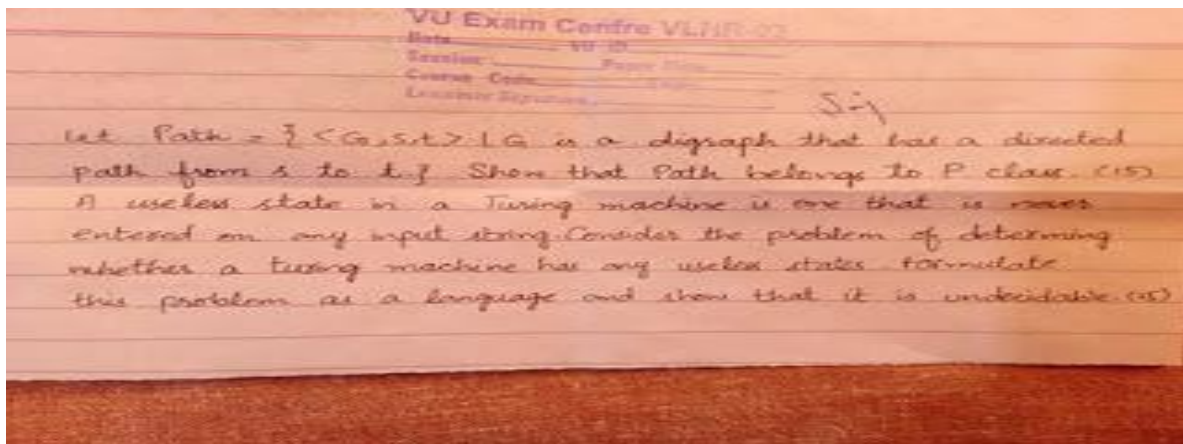 VU Exam Centre VLHR-03
Date VU ID
Session
Course Code
Let Path = { <G,s,t> | G is a digraph that has a directed
path from s to t } Show that Path belongs to P class. (15)
A useless state in a Turing machine is one that is never
entered on any input string. Consider the problem of determing
whether a turing machine has any useless states formulate
this problem as a language and show that it is undecidable. (15)